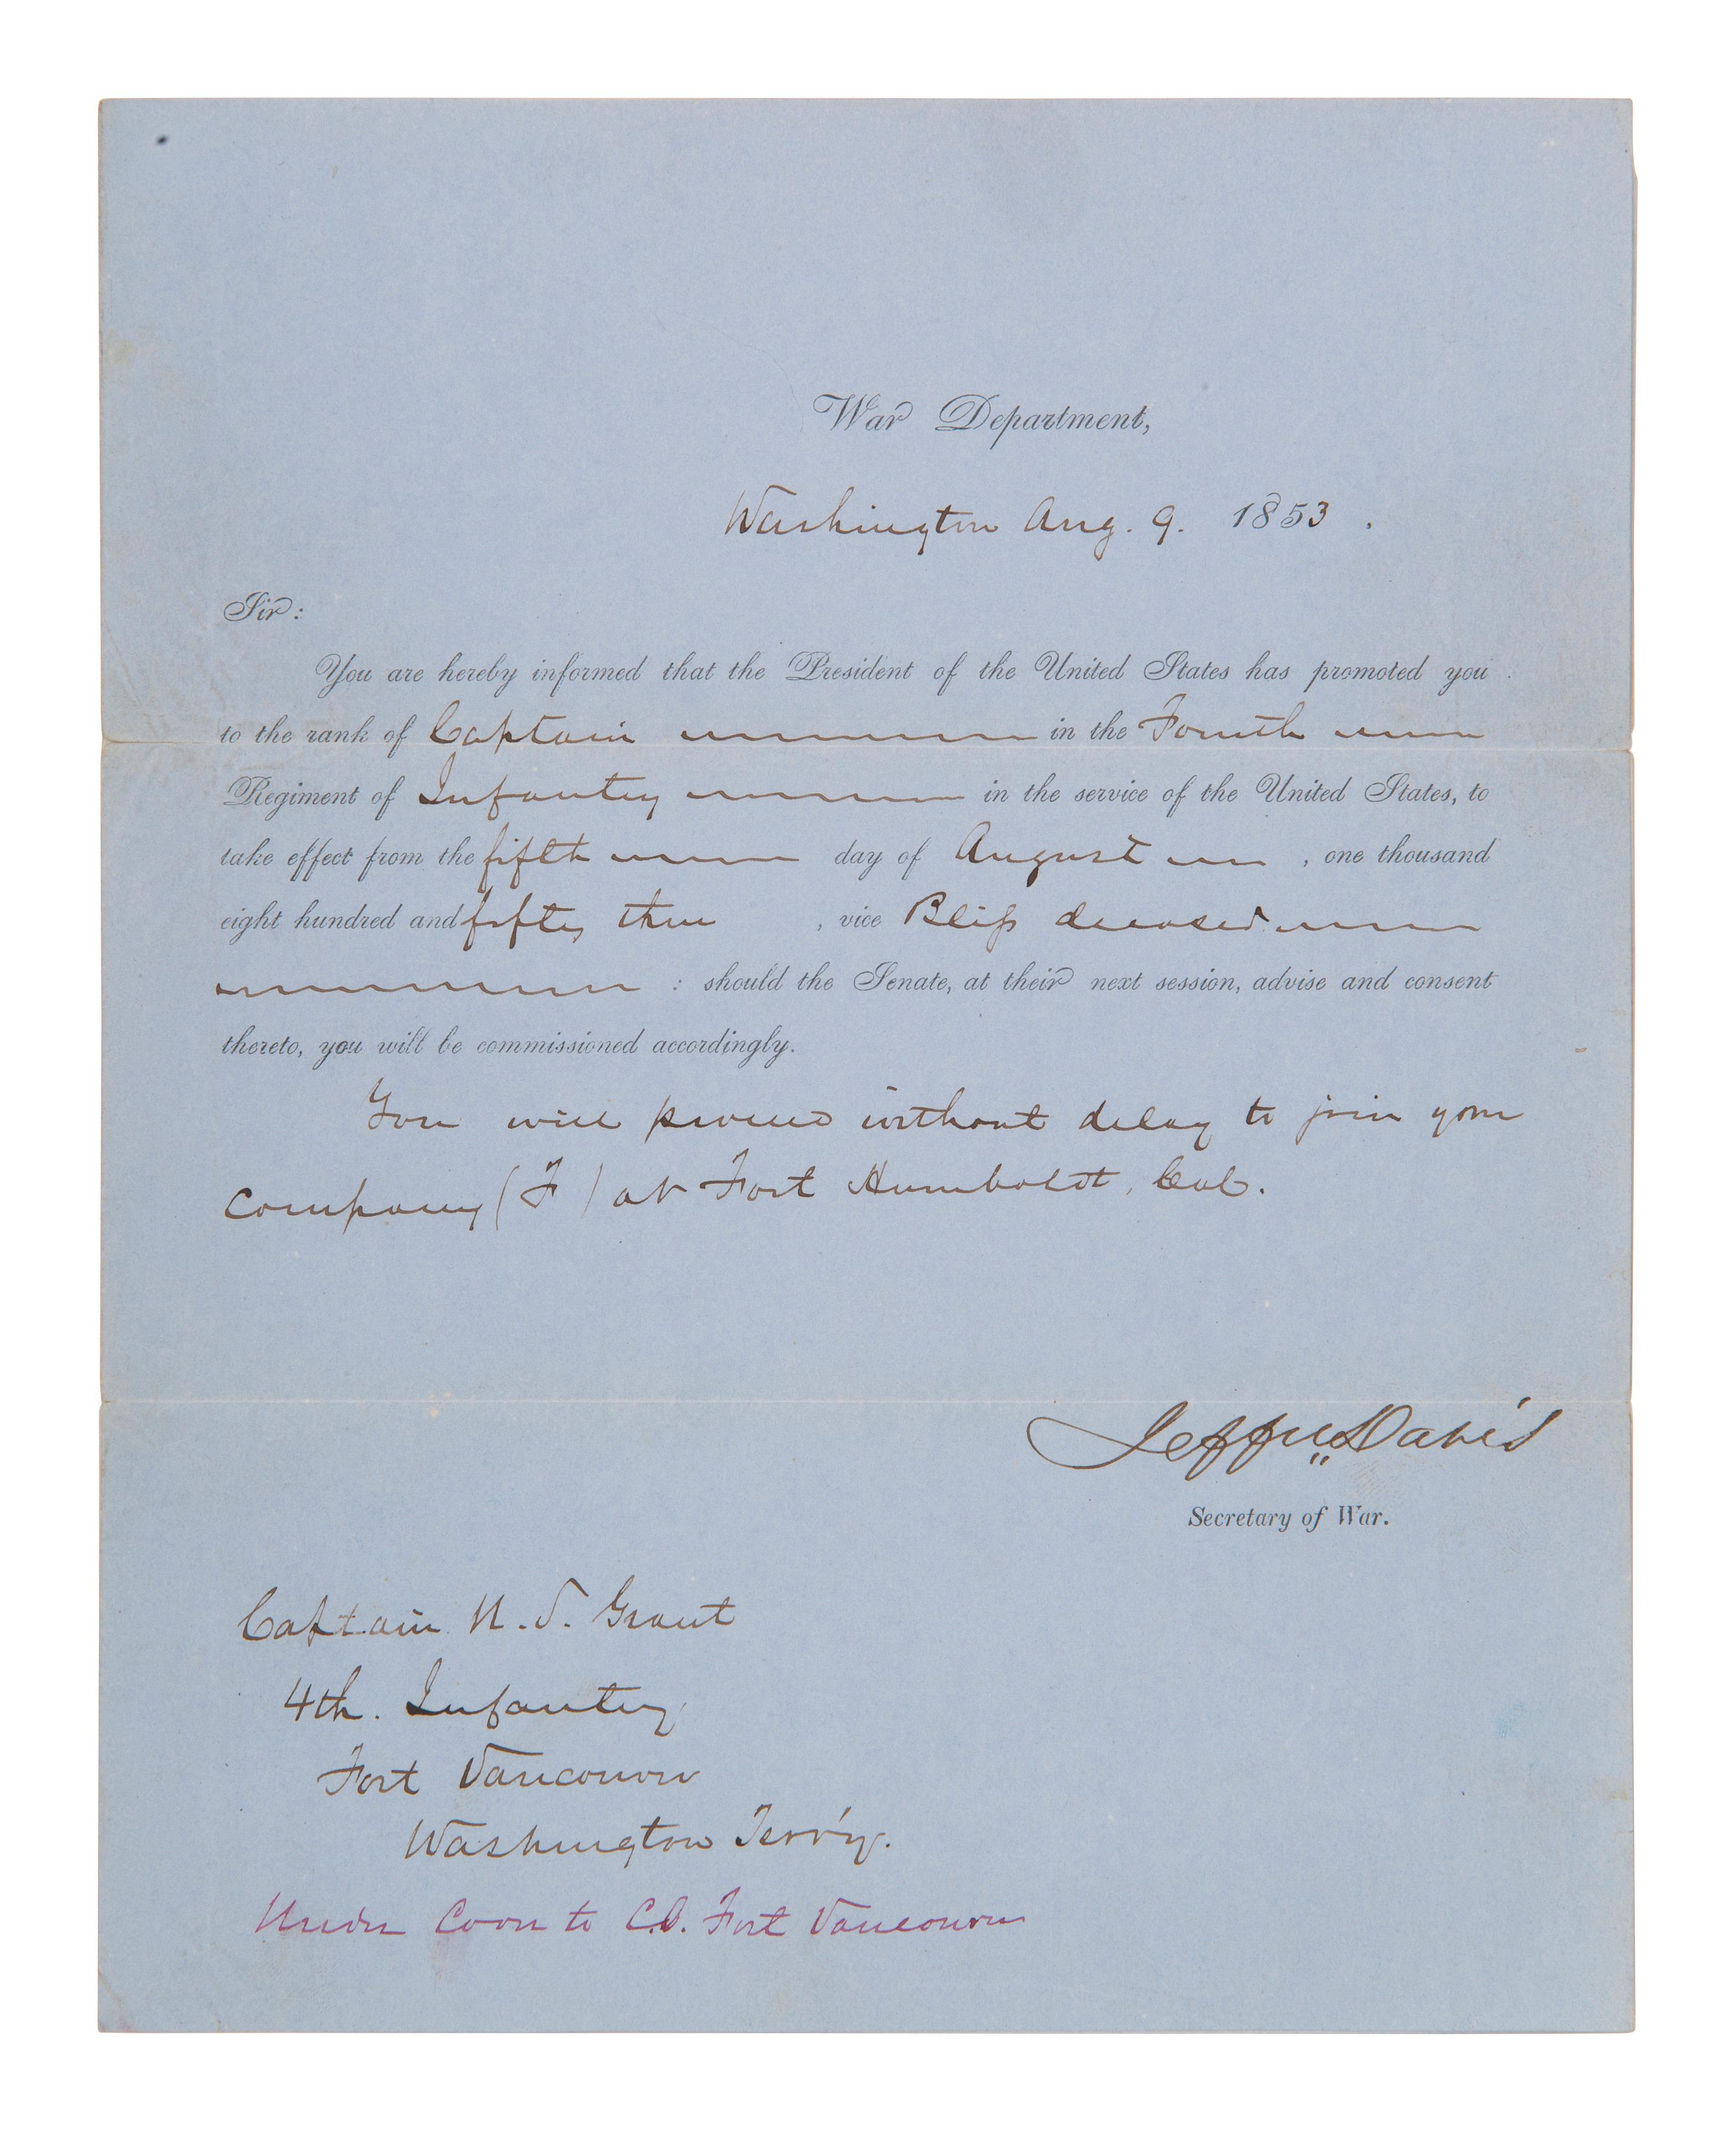 War Department,
Washington Aug. 9. 1853.
Sir:
You are hereby informed that the President of the United States has promoted you
to the rank of Captain in the Fourth
Regiment of Infantry in the service of the United States, to
take effect from the fifth day of August, one thousand
eight hundred and fifty three, vice Bliss deceased
: should the Senate, at their next session, advise and consent
thereto, you will be commissioned accordingly.
You will proceed without delay to join your
company (F) at Fort Humboldt, Cal.
Jeffn. Davis
Secretary of War.
Captain U. S. Grant
4th. Infantry
Fort Vancouver
Washington Terr'y.
Under Cover to C.O. Fort Vancouver